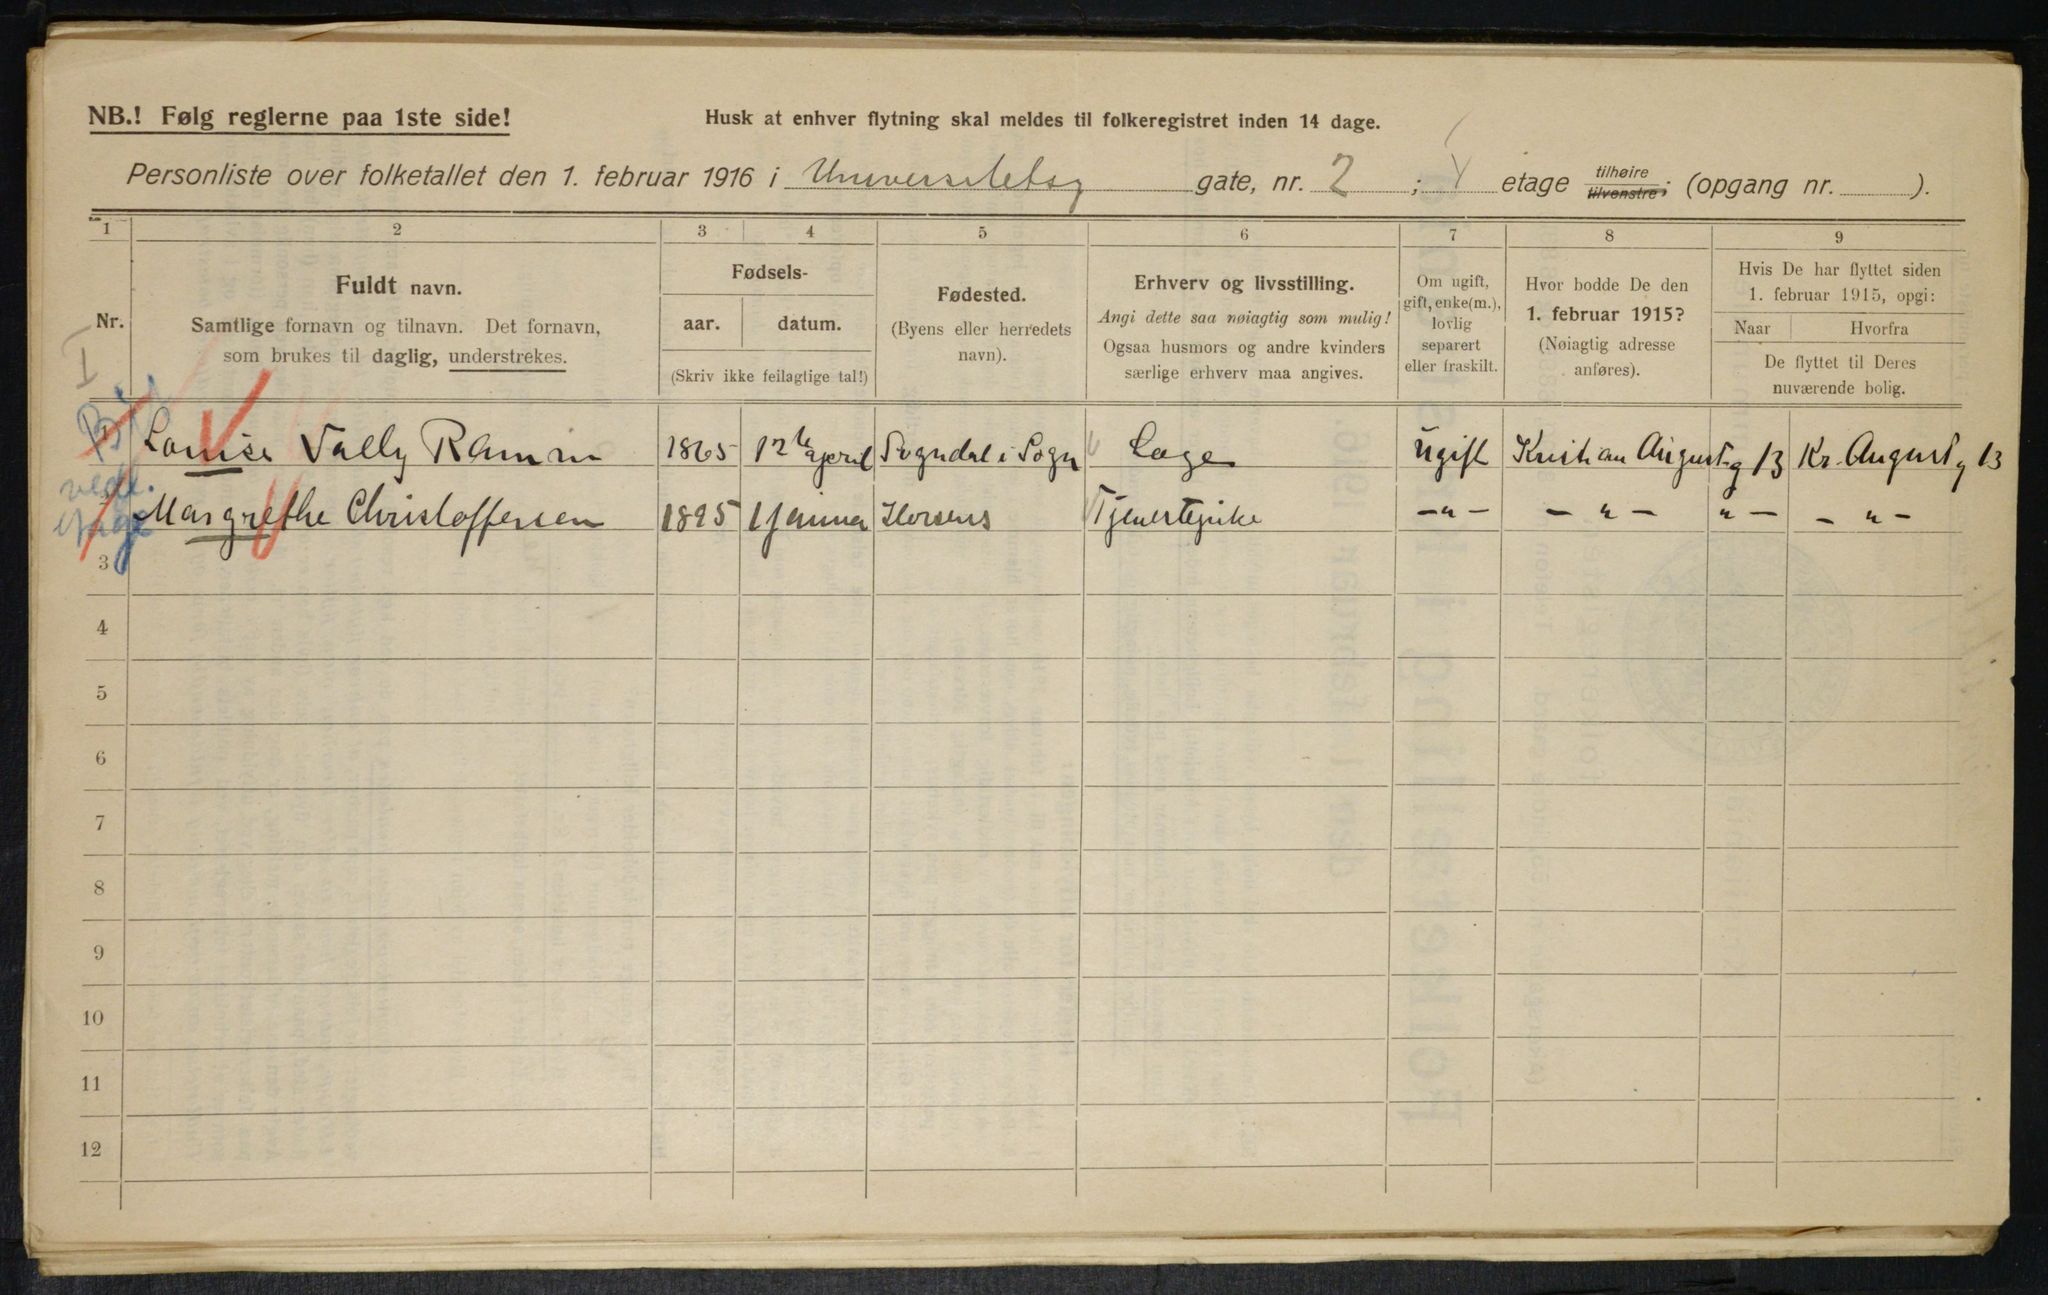 NB.! Følg reglerne paa 1ste side!
Husk at enhver flytning skal meldes til folkeregistret inden 14 dage.
Personliste over folketallet den 1. februar 1916 i Universitetsg gate, nr. 2 ; etage tilhøire tilvenstre; (opgang nr. ).
1 2 3 4 5 6 7 8 9
Nr.
Fuldt navn.
Samtlige fornavn og tilnavn. Det fornavn,
som brukes til daglig, understrekes.
Fødsels-
aar. datum.
(Skriv ikke feilagtige tal!)
Fødested.
(Byens eller herredets
navn).
Erhverv og livsstilling.
Angi dette saa nøiagtig som mulig!
Ogsaa husmors og andre kvinders
særlige erhverv maa angives.
Om ugift,
gift, enke(m.),
lovlig
separert
eller fraskilt.
Hvor bodde De den
1. februar 1915?
(Nøiagtig adresse
anføres).
Hvis De har flyttet siden
1. februar 1915, opgi:
Naar Hvorfra
De flyttet til Deres
nuværende bolig.
I
1 Louise Vally Ramm 1865 12te april Sogndal i Sogn Læge ugift Kristian Augustg 13 Kr. Augustg 13
Margrethe Christoffersen 1895 1 janua Horsens Tjenestepike —"— — " — " — — " —
3
4
5
6
7
8
9
10
11
12